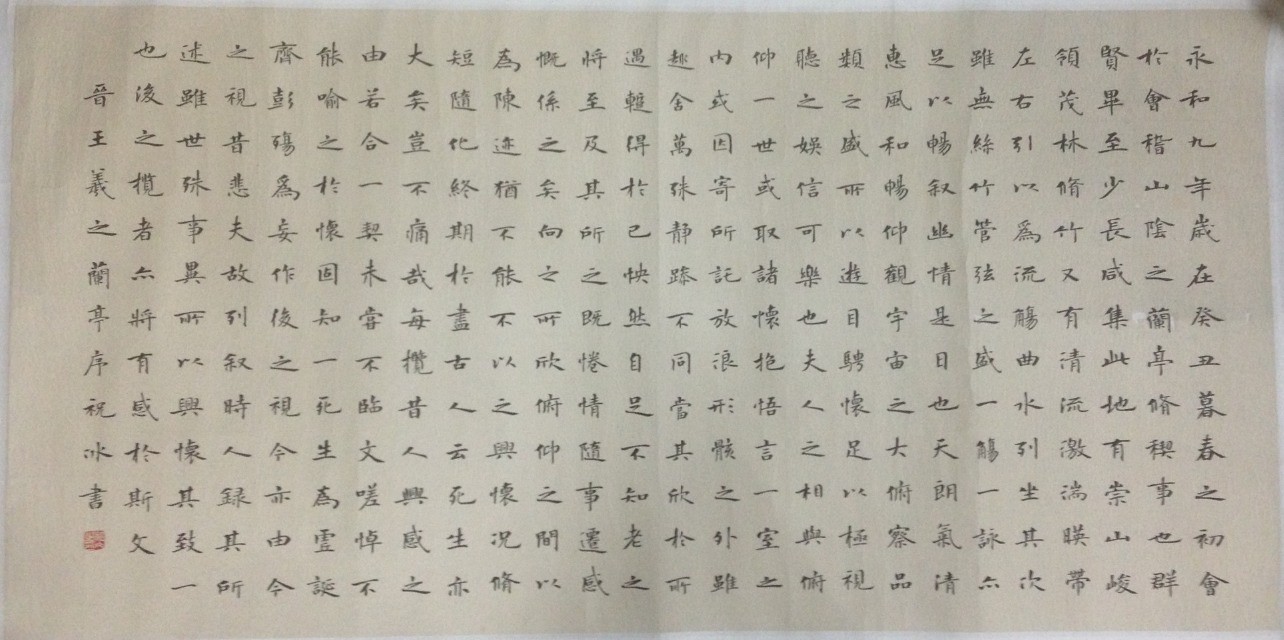 永和九年歲在癸丑暮春之初會
於會稽山陰之蘭亭脩稧事也群
賢畢至少長咸集此地有崇山峻
領茂林脩竹又有清流激湍暎帶
左右引以爲流觴曲水列坐其次
雖無絲竹管弦之盛一觴一詠亦
足以暢叙幽情是日也天朗氣清
惠風和暢仰觀宇宙之大俯察品
類之盛所以遊目騁懷足以極視
聽之娛信可樂也夫人之相與俯
仰一世或取諸懷抱悟言一室之
內或因寄所託放浪形骸之外雖
趣舍萬殊靜躁不同當其欣於所
遇蹔得於己怏然自足不知老之
將至及其所之既惓情隨事遷感
慨係之矣向之所欣俯仰之間以
為陳迹猶不能不以之興懷況脩
短隨化終期於盡古人云死生亦
大矣豈不痛哉每攬昔人興感之
由若合一契未嘗不臨文嗟悼不
能喻之於懷固知一死生為虛誕
齊彭殤爲妄作後之視今亦由今
之視昔悲夫故列叙時人録其所
述雖世殊事異所以興懷其致一
也後之攬者亦將有感於斯文
晉王羲之蘭亭序祝冰書